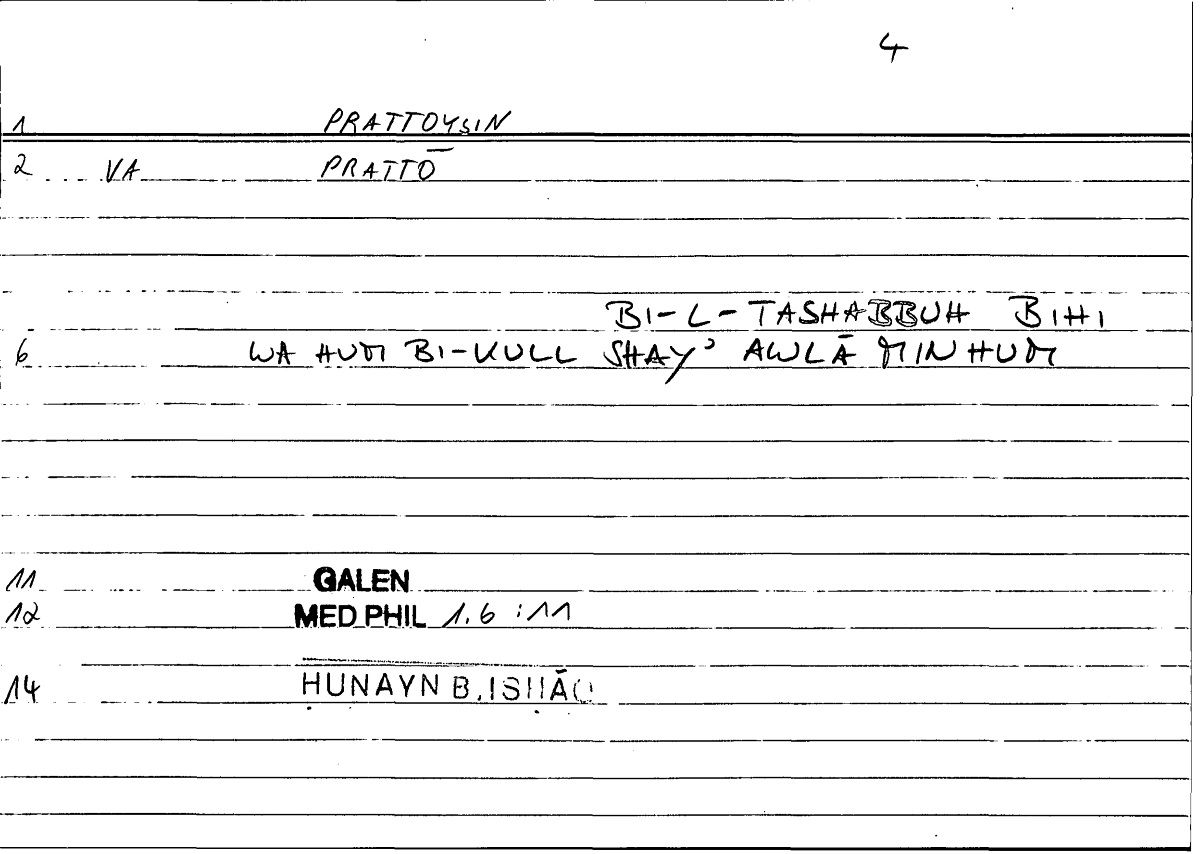 4
1 PRATTOYSIN
2 VA PRATTŌ
BI-L-TASHABBUH BIHI
6 WA HUM BI-KULL SHAYʾ AWLĀ MINHUM
11 GALEN
12 MED PHIL 1.6 :11
14 ḤUNAYN B. ISḤĀQ